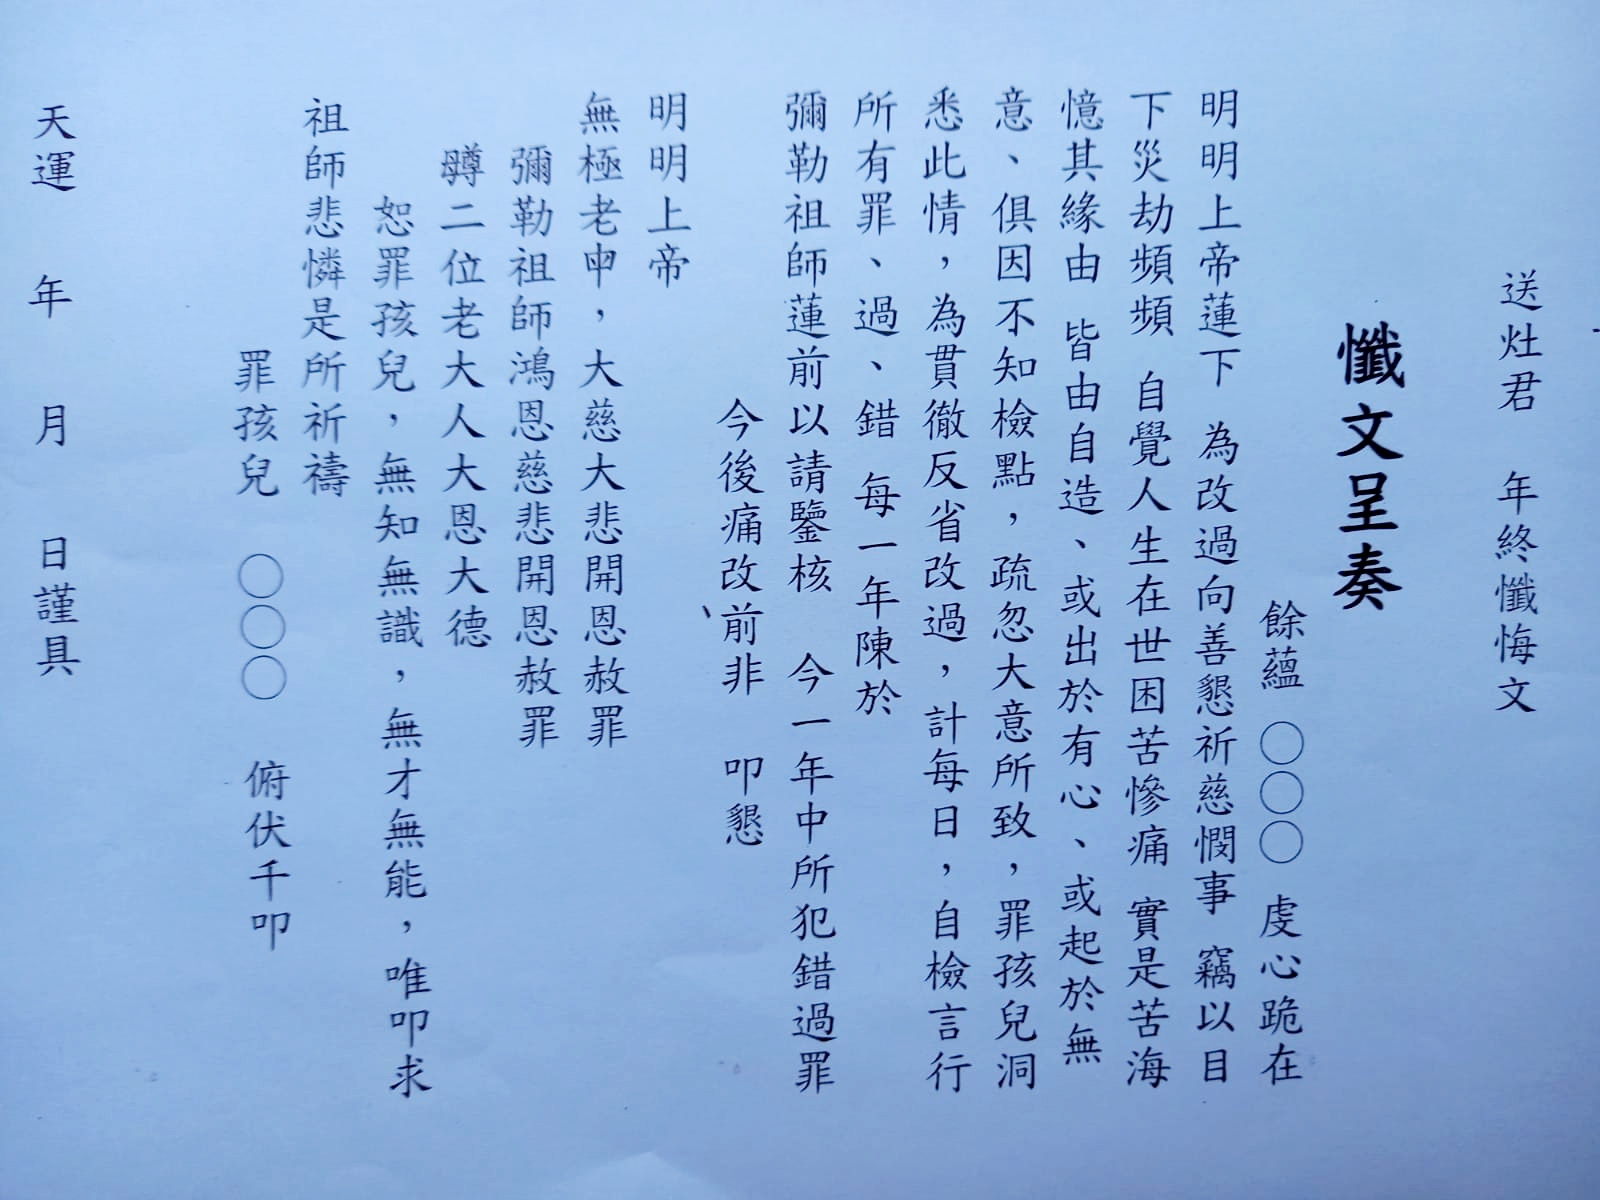 送灶君　年終懺悔文
懺文呈奏
餘蘊　○○○　虔心跪在
明明上帝蓮下　為改過向善懇祈慈憫事　竊以目
下災劫頻頻　自覺人生在世困苦慘痛　實是苦海
憶其緣由　皆由自造、或出於有心、或起於無
意、俱因不知檢點，疏忽大意所致，罪孩兒洞
悉此情，為貫徹反省改過，計每日，自檢言行
所有罪、過、錯　每一年陳於
彌勒祖師蓮前以請鑒核　今一年中所犯錯過罪
今後痛改前非　叩懇
明明上帝
無極老𢆄，大慈大悲開恩赦罪
彌勒祖師鴻恩慈悲開恩赦罪
二位老大人大恩大德
恕罪孩兒，無知無識，無才無能，唯叩求
祖師悲憐是所祈禱
罪孩兒　○○○　俯伏千叩
天運　年　月　日謹具